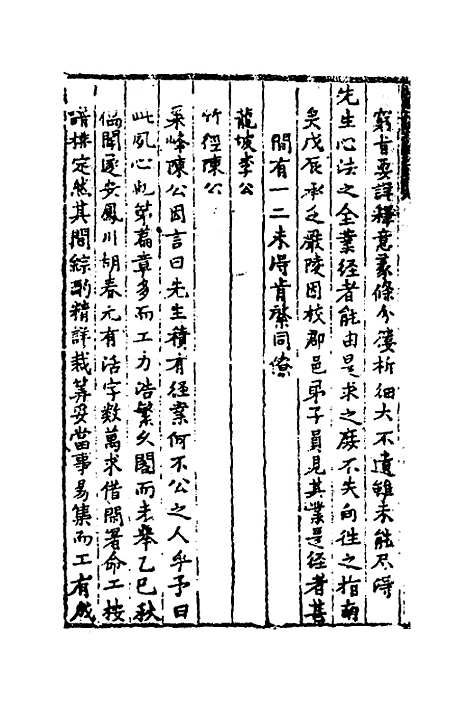 窮旨要詳釋意義條分縷析細大不遺雖未能尽得
先生心法之全業経者能由是求之庶不失向往之指南
矣戊辰承乏嚴陵因校郡邑弟子員見其業是経者甚
間有一二未得肯綮同僚
龍坡李公
竹徑陳公
采峰陳公因言曰先生積有経案何不公之人乎予曰
此夙心也第篇章多而工力浩繁久閣而未舉乙巳秋
偶聞遂安鳳川胡春元有活字数萬求借閱署命工按
譜排定然其間綜酌精詳裁筭妥當事易集而工有成